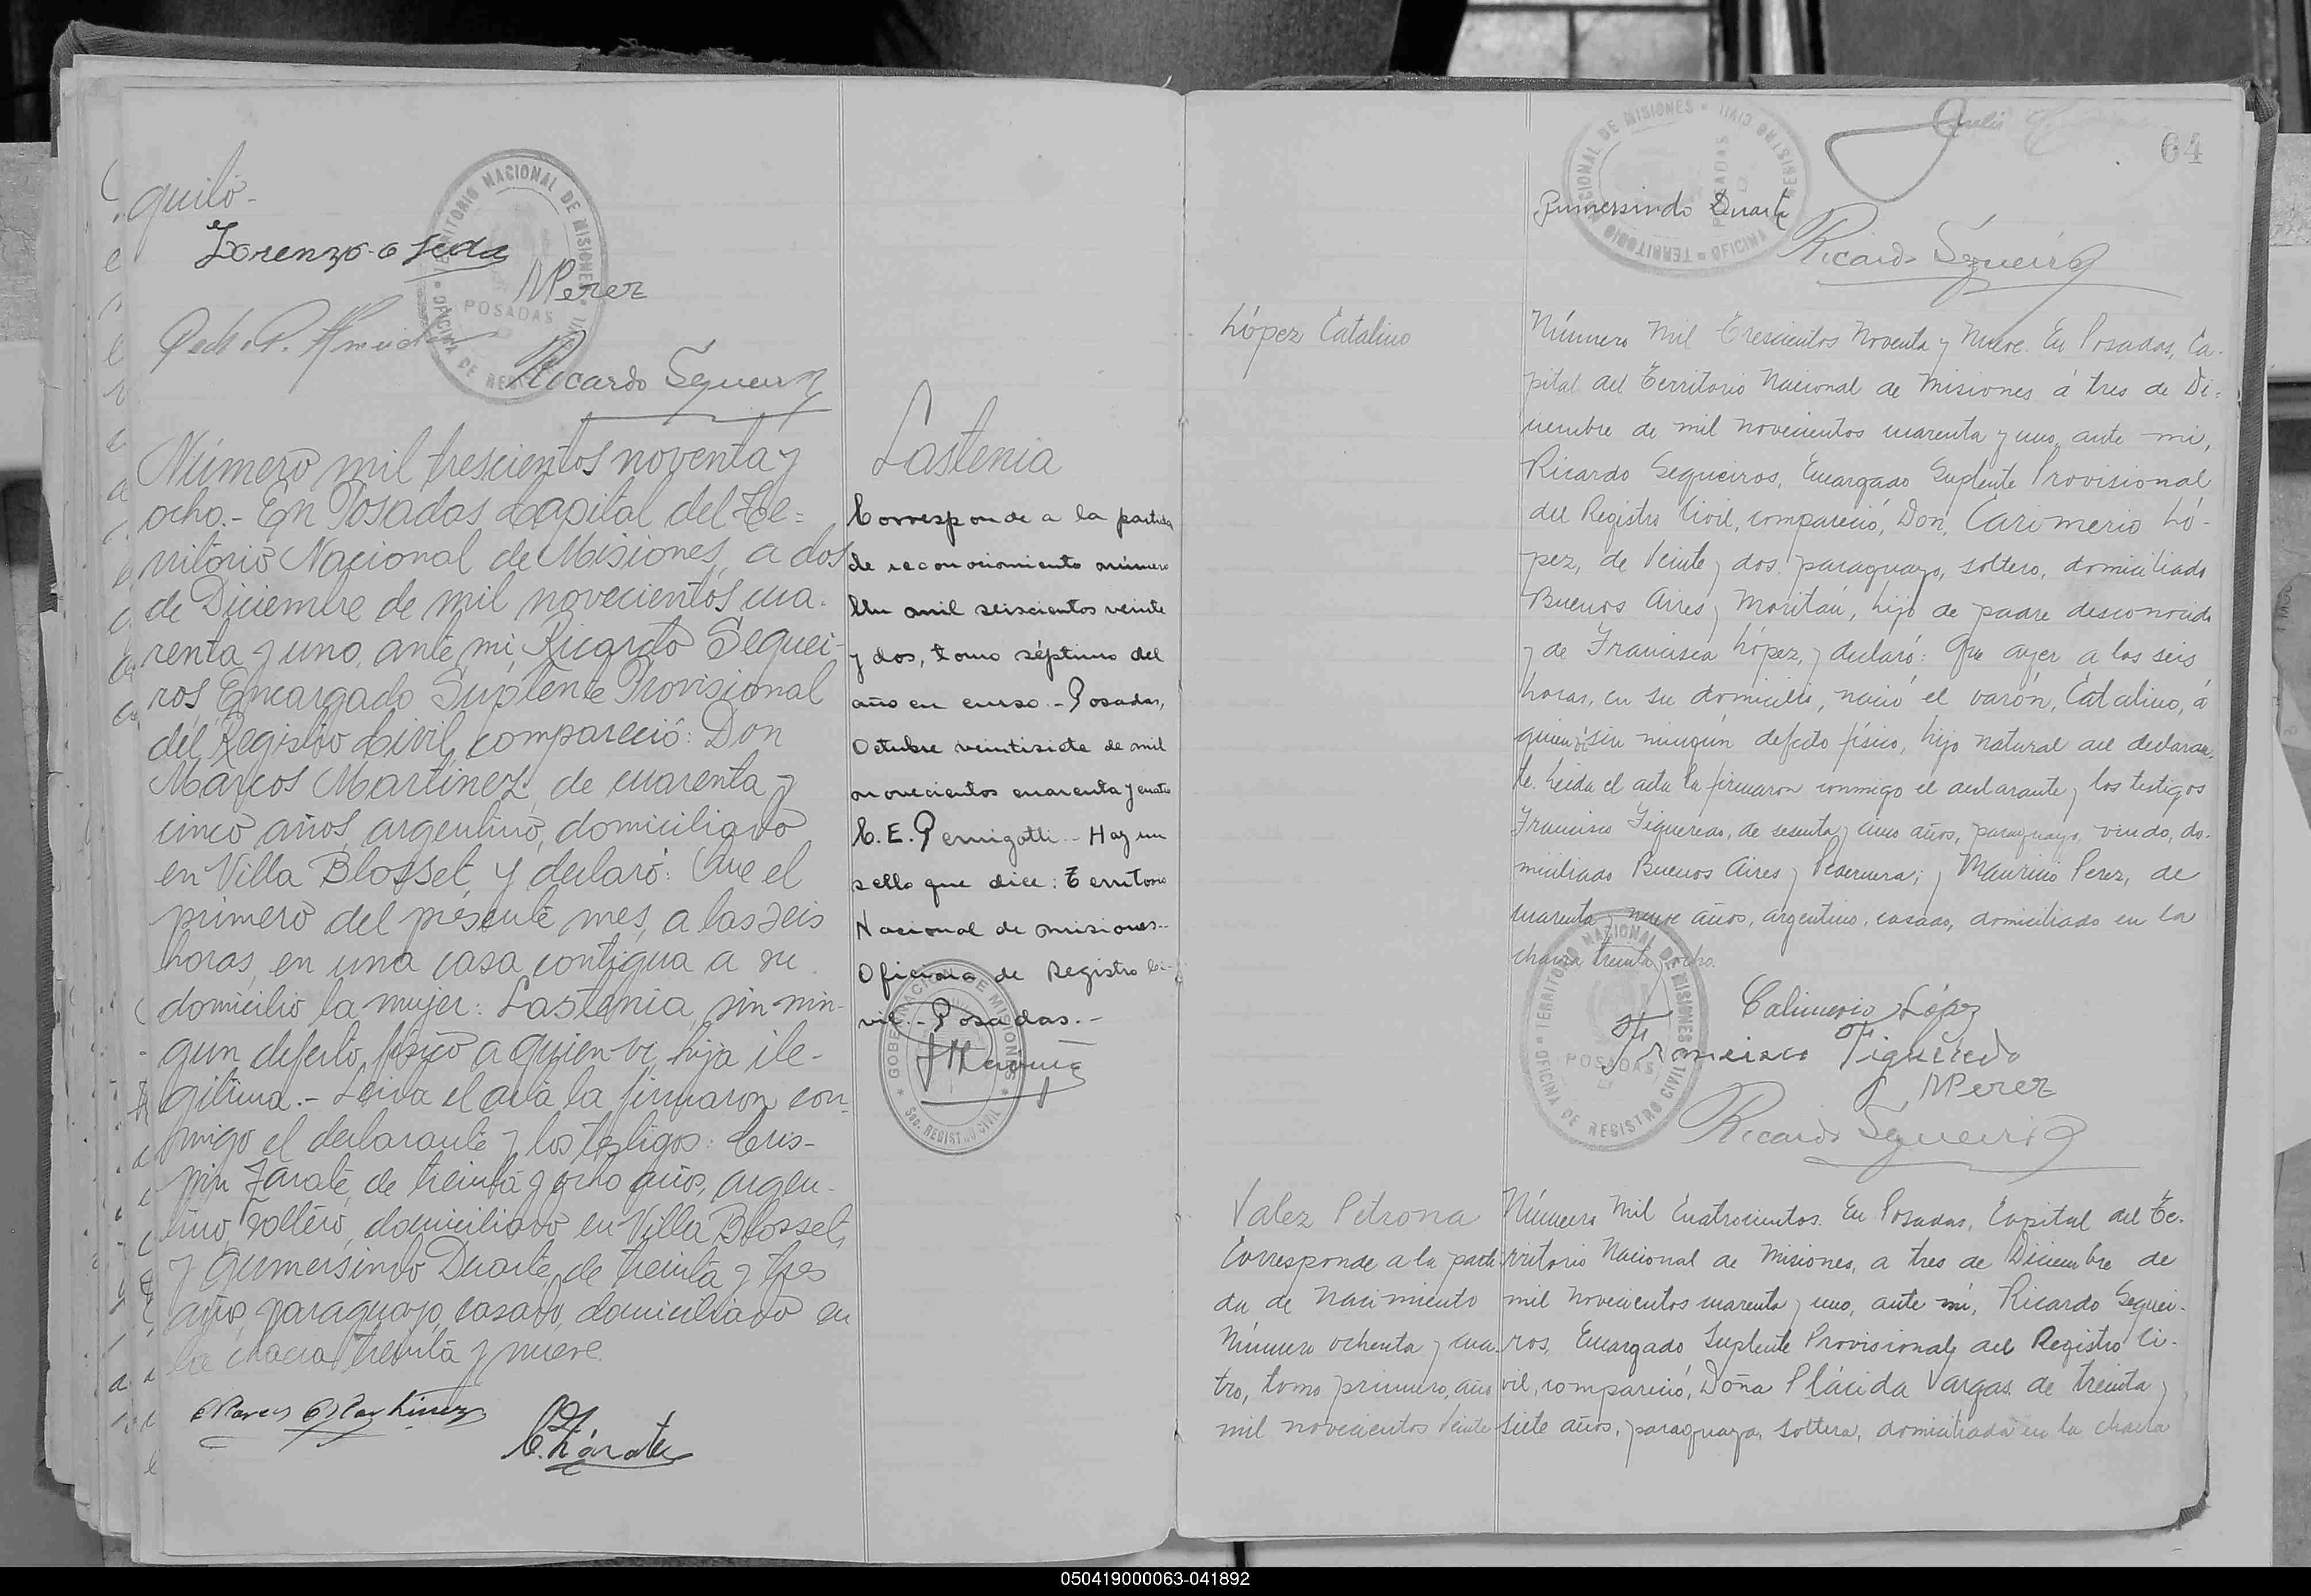 quiló-
Lorenzo Ojeda
MPerez
Ricardo Sequeiros
TERRITORIO NACIONAL DE MISIONES
POSADAS
OFICINA DE REGISTRO CIVIL
Número mil trescientos noventa y
ocho.- En Posadas Capital del Te=
rritorio Nacional de Misiones, a dos
de Diciembre de mil novecientos cua-
renta y uno, ante mí Ricardo Sequei-
ros Encargado Suplente Provisional
del Registro Civil, compareció: Don
Marcos Martinez, de cuarenta y
cinco años, argentino, domiciliado
en Villa Blosset, y declaró: Que el
primero del présente mes, a las seis
horas, en una casa contigua a su
domicilio la mujer: Lastenia, sin nin-
gun defecto físico a quien vi, hija ile-
gitima.- Leida el acta la firmaron con-
migo el declarante y los testigos: Cris-
pin Zarate, de treinta y ocho años, argen-
tino, soltero, domiciliado en Villa Blosset,
y Gumersindo Duarte, de treinta y tres
años, paraguayo, casado, domiciliado en
la chacra treinta y nueve.
Marcos Martinez
C. Zárate
Lastenia
Corresponde a la partida
de reconocimiento número
Un mil seiscientos veinte
y dos, tomo séptimo del
año en curso.- Posadas,
Octubre veintisiete de mil
novecientos cuarenta y cuatro
C. E. Pernigotti.- Hay un
sello que dice: Territorio
Nacional de misiones.-
Oficina de Registro Ci-
vil.- Posadas.-
GOBERNACION DE MISIONES
SEC. REGISTRO CIVIL
64
Gumersindo Duarte
Ricardo Sequeiros
TERRITORIO NACIONAL DE MISIONES
POSADAS
OFICINA REGISTRO CIVIL
López Catalino
Número Mil Trescientos Noventa y Nueve. En Posadas, Ca-
pital del Territorio Nacional de Misiones á tres de Di=
ciembre de mil novecientos cuarenta y uno, ante mí,
Ricardo Sequeiros, Encargado Suplente Provisional
del Registro Civil, compareció, Don, Carimerio Ló-
pez, de Veinte y dos, paraguayo, soltero, domiciliado
Buenos Aires y Moritán, hijo de padre desconocido
y de Francisca López, y declaró: Que ayer a las seis
horas, en su domicilio, nació el varón, Catalino, á
quien vi sin ningún defecto físico, hijo natural del declaran-
te. Leida el acta la firmaron conmigo el declarante y los testigos
Francisco Figueredo, de sesenta y cinco años, paraguayo, viudo, do-
miciliado Buenos Aires y Pedernera; y Mauricio Perez, de
cuarenta y nueve años, argentino, casado, domiciliado en la
chacra treinta y ocho.
Calimerio López
Francisco Figueredo
MPerez
Ricardo Sequeiros
TERRITORIO NACIONAL DE MISIONES
POSADAS
OFICINA DE REGISTRO CIVIL
Valez Petrona
Corresponde a la parti
da de nacimiento
Número ochenta y cua
tro, tomo primero, año
mil novecientos Veinte
Número Mil Cuatrocientos. En Posadas, Capital del Te-
rritorio Nacional de Misiones, a tres de Diciembre de
mil novecientos cuarenta y uno, ante mí, Ricardo Sequei-
ros, Encargado Suplente Provisional del Registro Ci-
vil, compareció, Doña Plácida Vargas de treinta y
siete años, paraguaya, soltera, domiciliada en la chacra
050419000063-041892